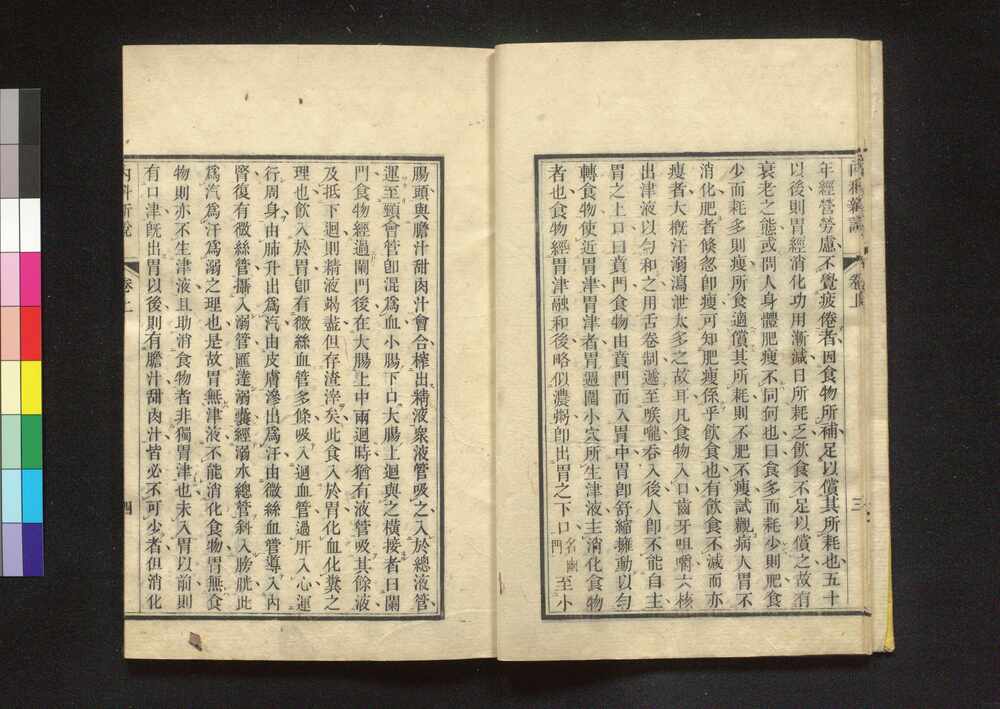 年經營勞慮不覺疲倦者因食物所補足以償其所耗也五十
以後則胃經消化功用漸減日所耗之飲食不足以償之故有
衰老之態或問人身體肥瘦不同何也曰食多而耗少則肥食
少而耗多則瘦所食適償其所耗則不肥不瘦試觀病人胃不
消化肥者倏忽卽瘦可知肥瘦係乎飲食也有飲食不減而亦
瘦者大槪汗溺瀉泄太多之故耳凡食物入口齒牙咀嚼六核
出津液以勻和之用舌卷制遞至喉嚨吞入後人卽不能自主
胃之上口曰賁門食物由賁門而入胃中胃卽舒縮擁動以勻
轉食物使近胃津胃津者胃週圍小穴所生津液主消化食物
者也食物經胃津融和後略似濃粥卽出胃之下口名幽門至小
三
腸頭與膽汁甜肉汁會合榨出精液衆液管吸之入於總液管
運至頸會管卽混爲血小腸下口大腸上迴與之橫接者曰闌
門食物經過闌門後在大腸上中兩迴時猶有液管吸其餘液
及抵下迴則精液竭盡但存渣滓矣此食入於胃化血化糞之
理也飲入於胃卽有微絲血管多條吸入迴血管過肝入心運
行周身由肺升出爲汽由皮膚滲出爲汗由微絲血管導入內
腎復有微絲管攝入溺管匯達溺囊經溺水總管斜入膀胱此
爲汽爲汗爲溺之理也是故胃無津液不能消化食物胃無食
物則亦不生津液且助消食物者非獨胃津也未入胃以前則
有口津旣出胃以後則有膽汁甜肉汁皆必不可少者但消化
內科新說
卷上
四